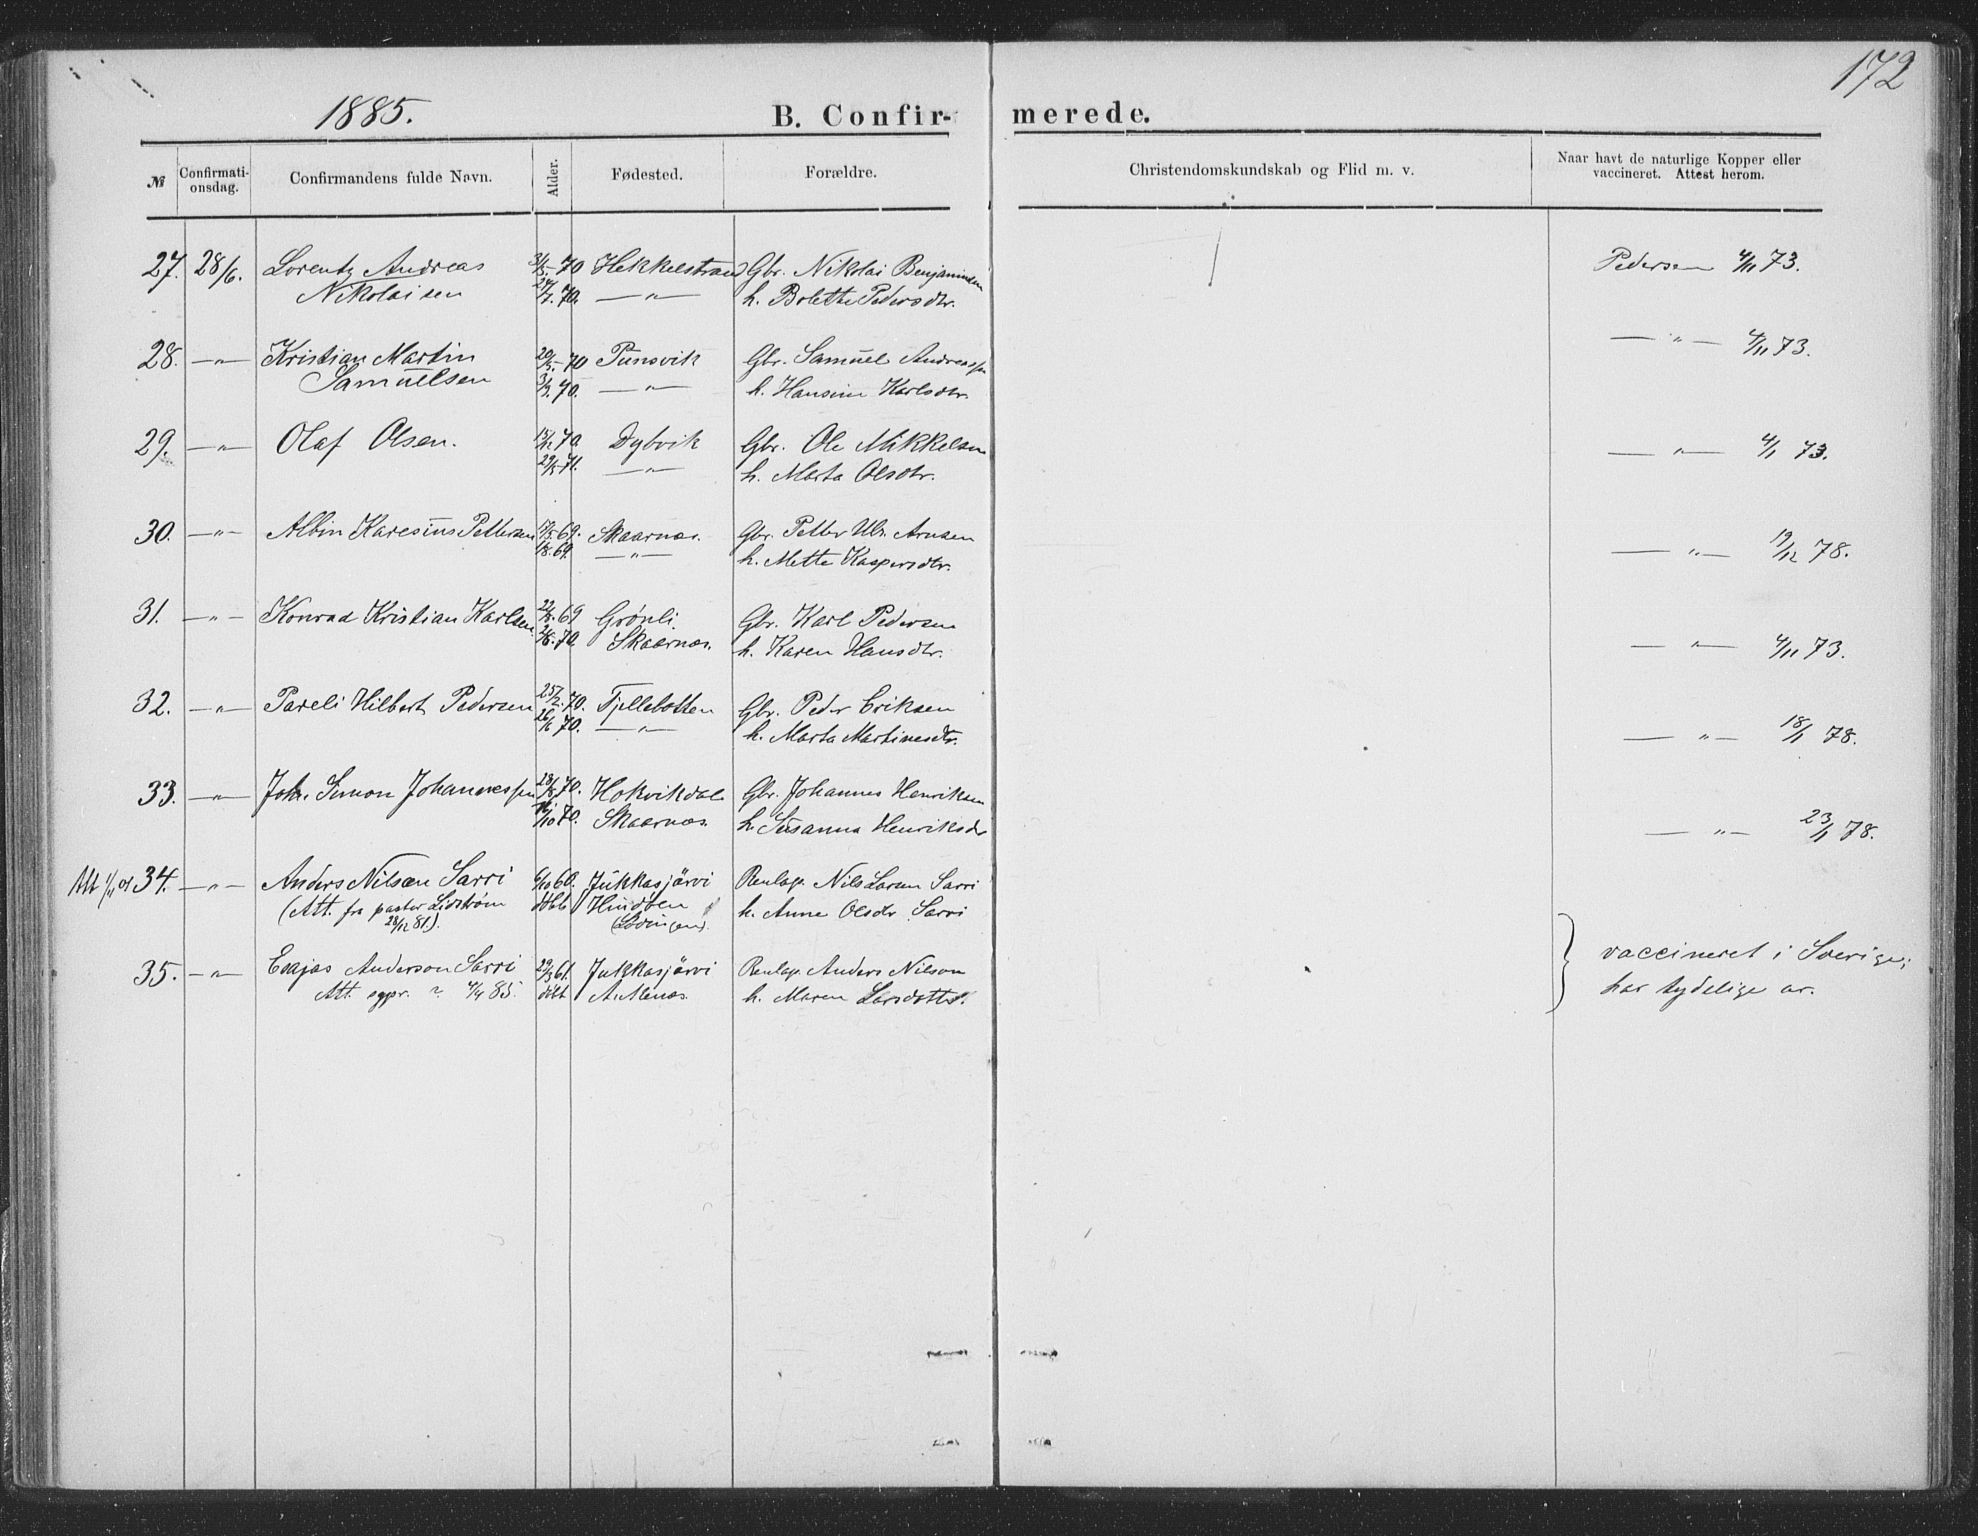 172
1885. B. Confirmerede.
№ Confirmationsdag. Confirmandens fulde Navn. Alder. Fødested. Forældre. Christendomskundskab og Flid m. v. Naar havt de naturlige Kopper eller vaccineret. Attest herom.
27. 28/6. Lorentz Andreas 70 Hekkelstrand Gbr. Nikolai Benjaminsen Pedersen 4/11 73.
Nikolaisen 70. —"— h. Bolette Pedersdtr.
28. —"— Kristian Martin 20/3-70 Punsvik Gbr. Samuel Andreassen —"— 4/11 73.
Samuelsen 70. —"— h. Hansine Karlsdtr.
29. —"— Olaf Olsen. 15/12 70 Dybvik Gbr. Ole Mikkelsen —"— 4/1 73.
29/5-71. —"— h. Marta Olsdtr.
30. —"— Albin Karesius Pettersen 17/5 69. Skaarnæs. Gbr. Petter Ulr. Arntsen —"— 19/12 78.
1/8. 69. —"— h. Mette Kaspersdtr.
31. —"— Konrad Kristian Karlsen 69 Grönli. Gbr. Karl Pedersen —"— 4/11 73.
70. Skaarnæs. h. Karen Hansdtr.
32. —"— Pareli Hilbert Pedersen 25/2. 70. Fjellbotten Gbr. Peder Eriksen —"— 18/1 78.
26/6 70. —"— h. Marta Martinesdtr.
33. —"— Joh. Simon Johannessen 28/8 70. Hokvikdal Gbr. Johannes Henriksen —"— 23/1 78.
/10 70. Skaarnæs. h. Susanna Henriksdr
Att 34. —"— Anders Nilsen Sarri 6/10 60. Jukkasjärvi Renlap. Nils Larsen Sarri
(Att. fra pastor Lidström döbt Hindöen h. Anne Olsdr Sarri
28/12 81.) (Lödingen).
35. —"— Esajas Anderson Sarri 29/3 61. Jukkasjärvi Renlap. Anders Nilson vaccineret i Sverige;
Att. sgpr. 4/4 85. döbt Ankenæs. h. Maren Larsdotter. har tydelige ar.